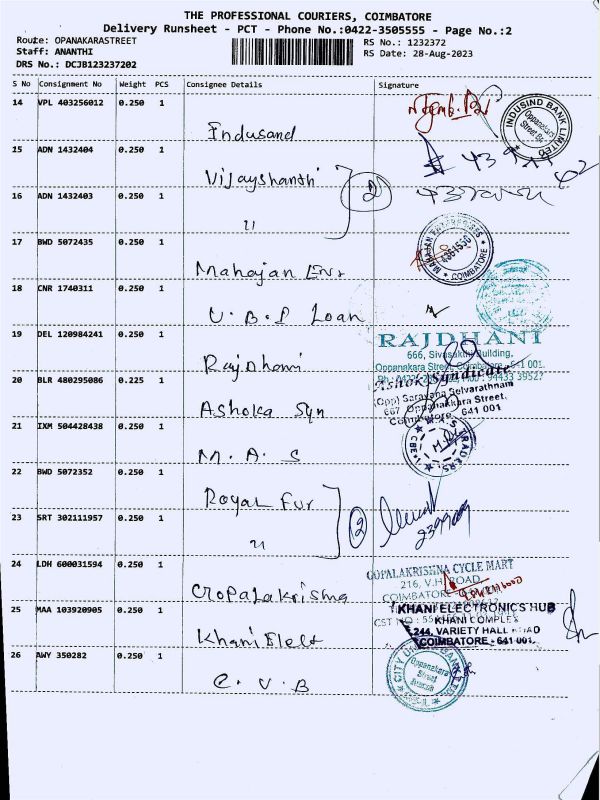 THE PROFESSIONAL COURIERS, COIMBATORE
Delivery Runsheet - PCT - Phone No.:0422-3505555 - Page No.:2
Route: OPANAKARASTREET
RS No.: 1232372
Staff: ANANTHI
RS Date: 28-Aug-2023
DRS No.: DCJB123237202
S No Consignment No Weight PCS Consignee Details Signature
14 VPL 403256012 0.250 1
Indusand
INDUSIND BANK LIMITED
Oppanakara
15 ADN 1432404 0.250 1
Vijayshanthi
2
16 ADN 1432403 0.250 1
"
17 BWD 5072435 0.250 1
Mahajan Ent
COIMBATORE
18 CNR 1740311 0.250 1
U.B.I Loan
19 DEL 120984241 0.250 1
Rajdhani
RAJDHANI
666, Sivasakthi Building,
Oppanakara Street, Coimbatore - 641 001.
20 BLR 480295086 0.225 1
Ashoka Syn
Ashok Syndicate
(Opp) Saravana Selvarathnam
667, Oppanakkara Street,
Coimbatore - 641 001
21 IXM 504428438 0.250 1
M.A.S
M.A.S. TRADERS
22 BWD 5072352 0.250 1
Royal Fur
2
23 SRT 302111957 0.250 1
"
24 LDH 600031594 0.250 1
Gopalakrisma
GOPALAKRISHNA CYCLE MART
216, V.H. ROAD,
COIMBATORE
25 MAA 103920905 0.250 1
Khani Elect
KHANI ELECTRONICS HUB
KHANI COMPLEX
244, VARIETY HALL ROAD
COIMBATORE - 641 001.
26 AWY 350282 0.250 1
C.U.B
CITY UNION BANK LTD
Oppanakara
Street
Branch